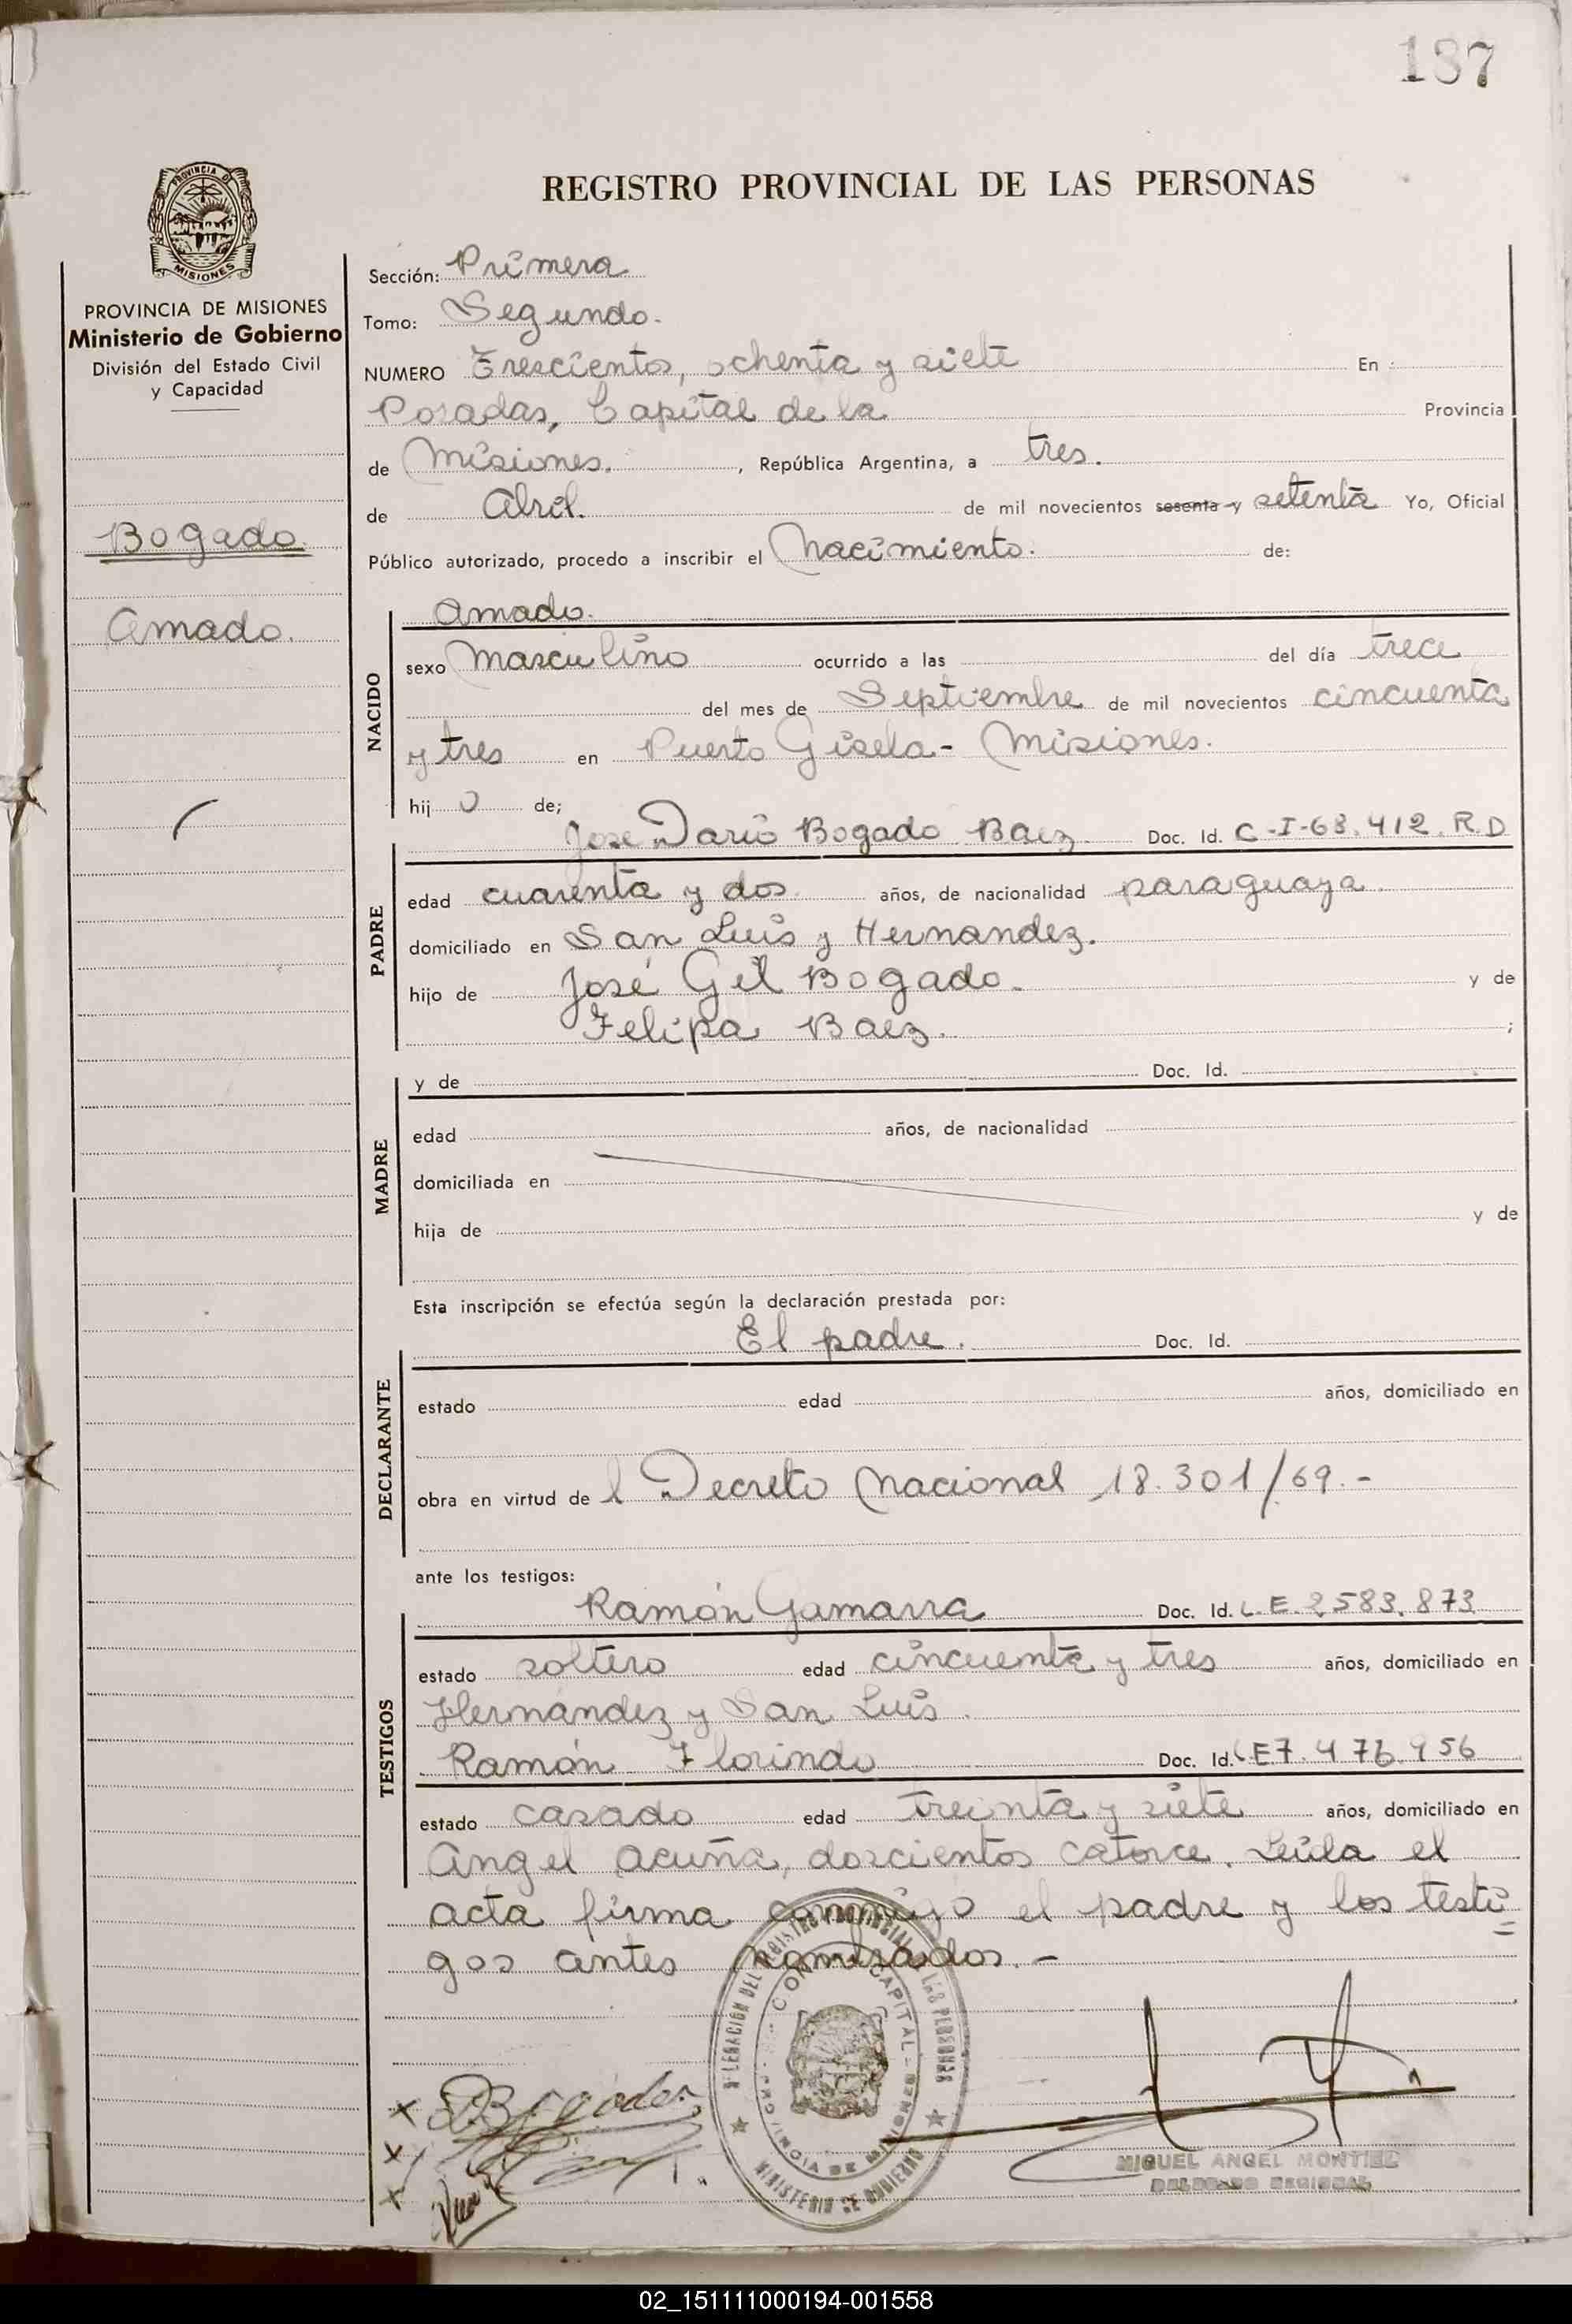 187
PROVINCIA DE
MISIONES
REGISTRO PROVINCIAL DE LAS PERSONAS
PROVINCIA DE MISIONES
Ministerio de Gobierno
División del Estado Civil
y Capacidad
Bogado
Amado.
Sección: Primera
Tomo: Segundo.
NUMERO Trescientos, ochenta y siete En :
Posadas, Capital de la Provincia
de Misiones. , República Argentina, a tres.
de Abril. de mil novecientos sesenta y setenta Yo, Oficial
Público autorizado, procedo a inscribir el Nacimiento. de:
NACIDO
Amado.
sexo Masculino ocurrido a las del día trece
del mes de Septiembre de mil novecientos cincuenta
y tres en Puerto Gisela - Misiones.
hij o de;
PADRE
Jose Dario Bogado Baez Doc. Id. C-I-68.412.R.D
edad cuarenta y dos años, de nacionalidad paraguaya.
domiciliado en San Luis y Hernandez.
hijo de José Gil Bogado. y de
Felipa Baez. ;
MADRE
y de Doc. Id.
edad años, de nacionalidad
domiciliada en
hija de y de
Esta inscripción se efectúa según la declaración prestada por:
DECLARANTE
El padre. Doc. Id.
estado edad años, domiciliado en
obra en virtud de l Decreto Nacional 18.301/69.-
ante los testigos:
TESTIGOS
Ramón Gamarra Doc. Id. L.E. 2583.873
estado soltero edad cincuenta y tres años, domiciliado en
Hernández y San Luis.
Ramón Florindo Doc. Id. LE7.476.956
estado casado edad treinta y siete años, domiciliado en
Angel Acuña, doscientos catorce. Leída el
acta firma conmigo el padre y los testi=
gos antes nombrados.-
DELEGACIÓN DEL REGISTRO PROVINCIAL DE LAS PERSONAS
CAPITAL - PROVINCIA DE MISIONES
MINISTERIO DE GOBIERNO
MIGUEL ANGEL MONTIEL
DELEGADO REGIONAL
02_151111000194-001558